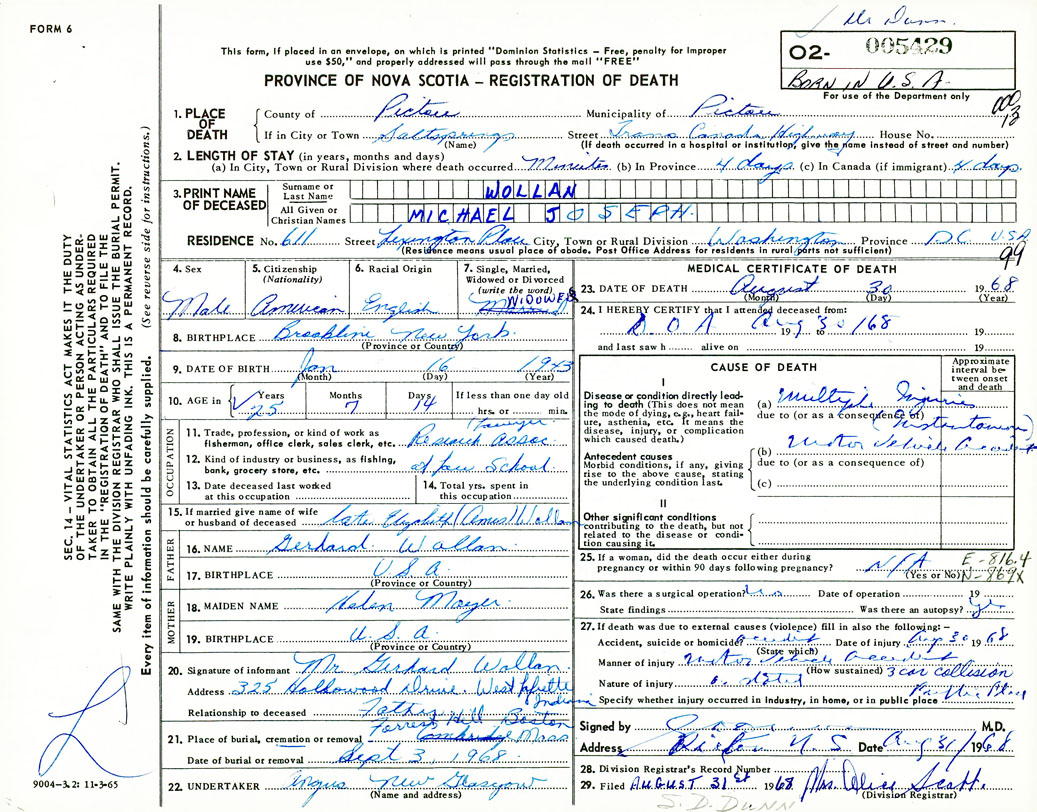 Dr Dunn.
FORM 6
This form, if placed in an envelope, on which is printed "Dominion Statistics – Free, penalty for improper
use $50," and properly addressed will pass through the mail "FREE"
O2- 005429
BORN IN U.S.A.
For use of the Department only
PROVINCE OF NOVA SCOTIA – REGISTRATION OF DEATH
1. PLACE OF DEATH
County of Pictou Municipality of Pictou
If in City or Town Saltsprings Street Trans Canada Highway House No.
(Name) (If death occurred in a hospital or institution, give the name instead of street and number)
2. LENGTH OF STAY (in years, months and days)
(a) In City, Town or Rural Division where death occurred Minutes (b) In Province 4 days (c) In Canada (if immigrant) 4 days
3. PRINT NAME OF DECEASED
Surname or Last Name WOLLAN
All Given or Christian Names MICHAEL JOSEPH
RESIDENCE No. 611 Street Lexington Place City, Town or Rural Division Washington Province DC USA
(Residence means usual place of abode. Post Office Address for residents in rural parts not sufficient)
99
4. Sex Male
5. Citizenship (Nationality) American
6. Racial Origin English
7. Single, Married, Widowed or Divorced (write the word) WIDOWED
8. BIRTHPLACE Brookline New York
(Province or Country)
9. DATE OF BIRTH Jan 16 1943
(Month) (Day) (Year)
10. AGE in Years 25 Months 7 Days 14 If less than one day old hrs. or min.
OCCUPATION
11. Trade, profession, or kind of work as fisherman, office clerk, sales clerk, etc. Lawyer Research Assoc.
12. Kind of industry or business, as fishing, bank, grocery store, etc. at Law School
13. Date deceased last worked at this occupation
14. Total yrs. spent in this occupation
15. If married give name of wife or husband of deceased late Elizabeth (Ames) Wollan
FATHER
16. NAME Gerhard Wollan
17. BIRTHPLACE U.S.A.
(Province or Country)
MOTHER
18. MAIDEN NAME Helen Moyer
19. BIRTHPLACE U.S.A.
(Province or Country)
20. Signature of informant Mr Gerhard Wollan
Address 325 Hollowood Drive, West Lafayette Indiana
Relationship to deceased Father
21. Place of burial, cremation or removal Forrest Hill Boston Cambridge Mass
Date of burial or removal Sept 3, 1968
22. UNDERTAKER Angus New Glasgow
(Name and address)
MEDICAL CERTIFICATE OF DEATH
23. DATE OF DEATH August 30 1968
(Month) (Day) (Year)
24. I HEREBY CERTIFY that I attended deceased from:
D O A Aug 30/68
19 to 19
and last saw h alive on 19
CAUSE OF DEATH
Approximate interval between onset and death
I
Disease or condition directly leading to death (This does not mean the mode of dying, e.g., heart failure, asthenia, etc. It means the disease, injury, or complication which caused death.)
(a) Multiple Injuries
due to (or as a consequence of) (Instantaneous)
Antecedent causes
Morbid conditions, if any, giving rise to the above cause, stating the underlying condition last.
(b) Motor Vehicle Accident
due to (or as a consequence of)
(c)
II
Other significant conditions contributing to the death, but not related to the disease or condition causing it.
25. If a woman, did the death occur either during pregnancy or within 90 days following pregnancy? N/A
(Yes or No)
E-816.4
N-869X
26. Was there a surgical operation? No Date of operation 19
State findings Was there an autopsy? Yes
27. If death was due to external causes (violence) fill in also the following:–
Accident, suicide or homicide accident Date of injury Aug 30 1968
(State which)
Manner of injury Motor Vehicle Accident
(How sustained) 3 car collision
Nature of injury as stated
Specify whether injury occurred in industry, in home, or in public place Public Place
Signed by M.D.
Address Pictou N.S. Date Aug 31/1968
28. Division Registrar's Record Number
29. Filed AUGUST 31st 1968 Mrs. Alice Scott
(Division Registrar)
S. D. DUNN
SEC. 14 – VITAL STATISTICS ACT MAKES IT THE DUTY
OF THE UNDERTAKER OR PERSON ACTING AS UNDER-
TAKER TO OBTAIN ALL THE PARTICULARS REQUIRED
IN THE "REGISTRATION OF DEATH" AND TO FILE THE
SAME WITH THE DIVISION REGISTRAR WHO SHALL ISSUE THE BURIAL PERMIT.
WRITE PLAINLY WITH UNFADING INK. THIS IS A PERMANENT RECORD.
Every item of information should be carefully supplied. (See reverse side for instructions.)
9004–3.2: 11-3-65